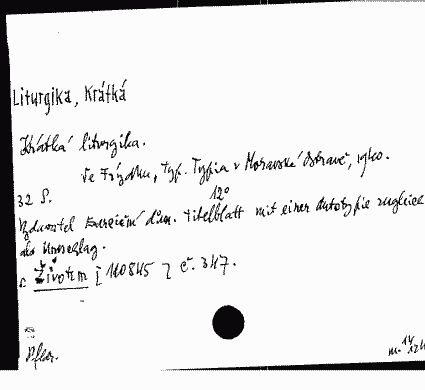 Liturgika, Krátká
Krátká liturgika.
Ve Frýdku, Typ. Typia v Moravské Ostravě, 1940.
32 S. 12°
Exerciční dům. Titelblatt mit einer Autotypie zugleich
als Umschlag.
s. Životem [110845] č. 347.
Pflor.